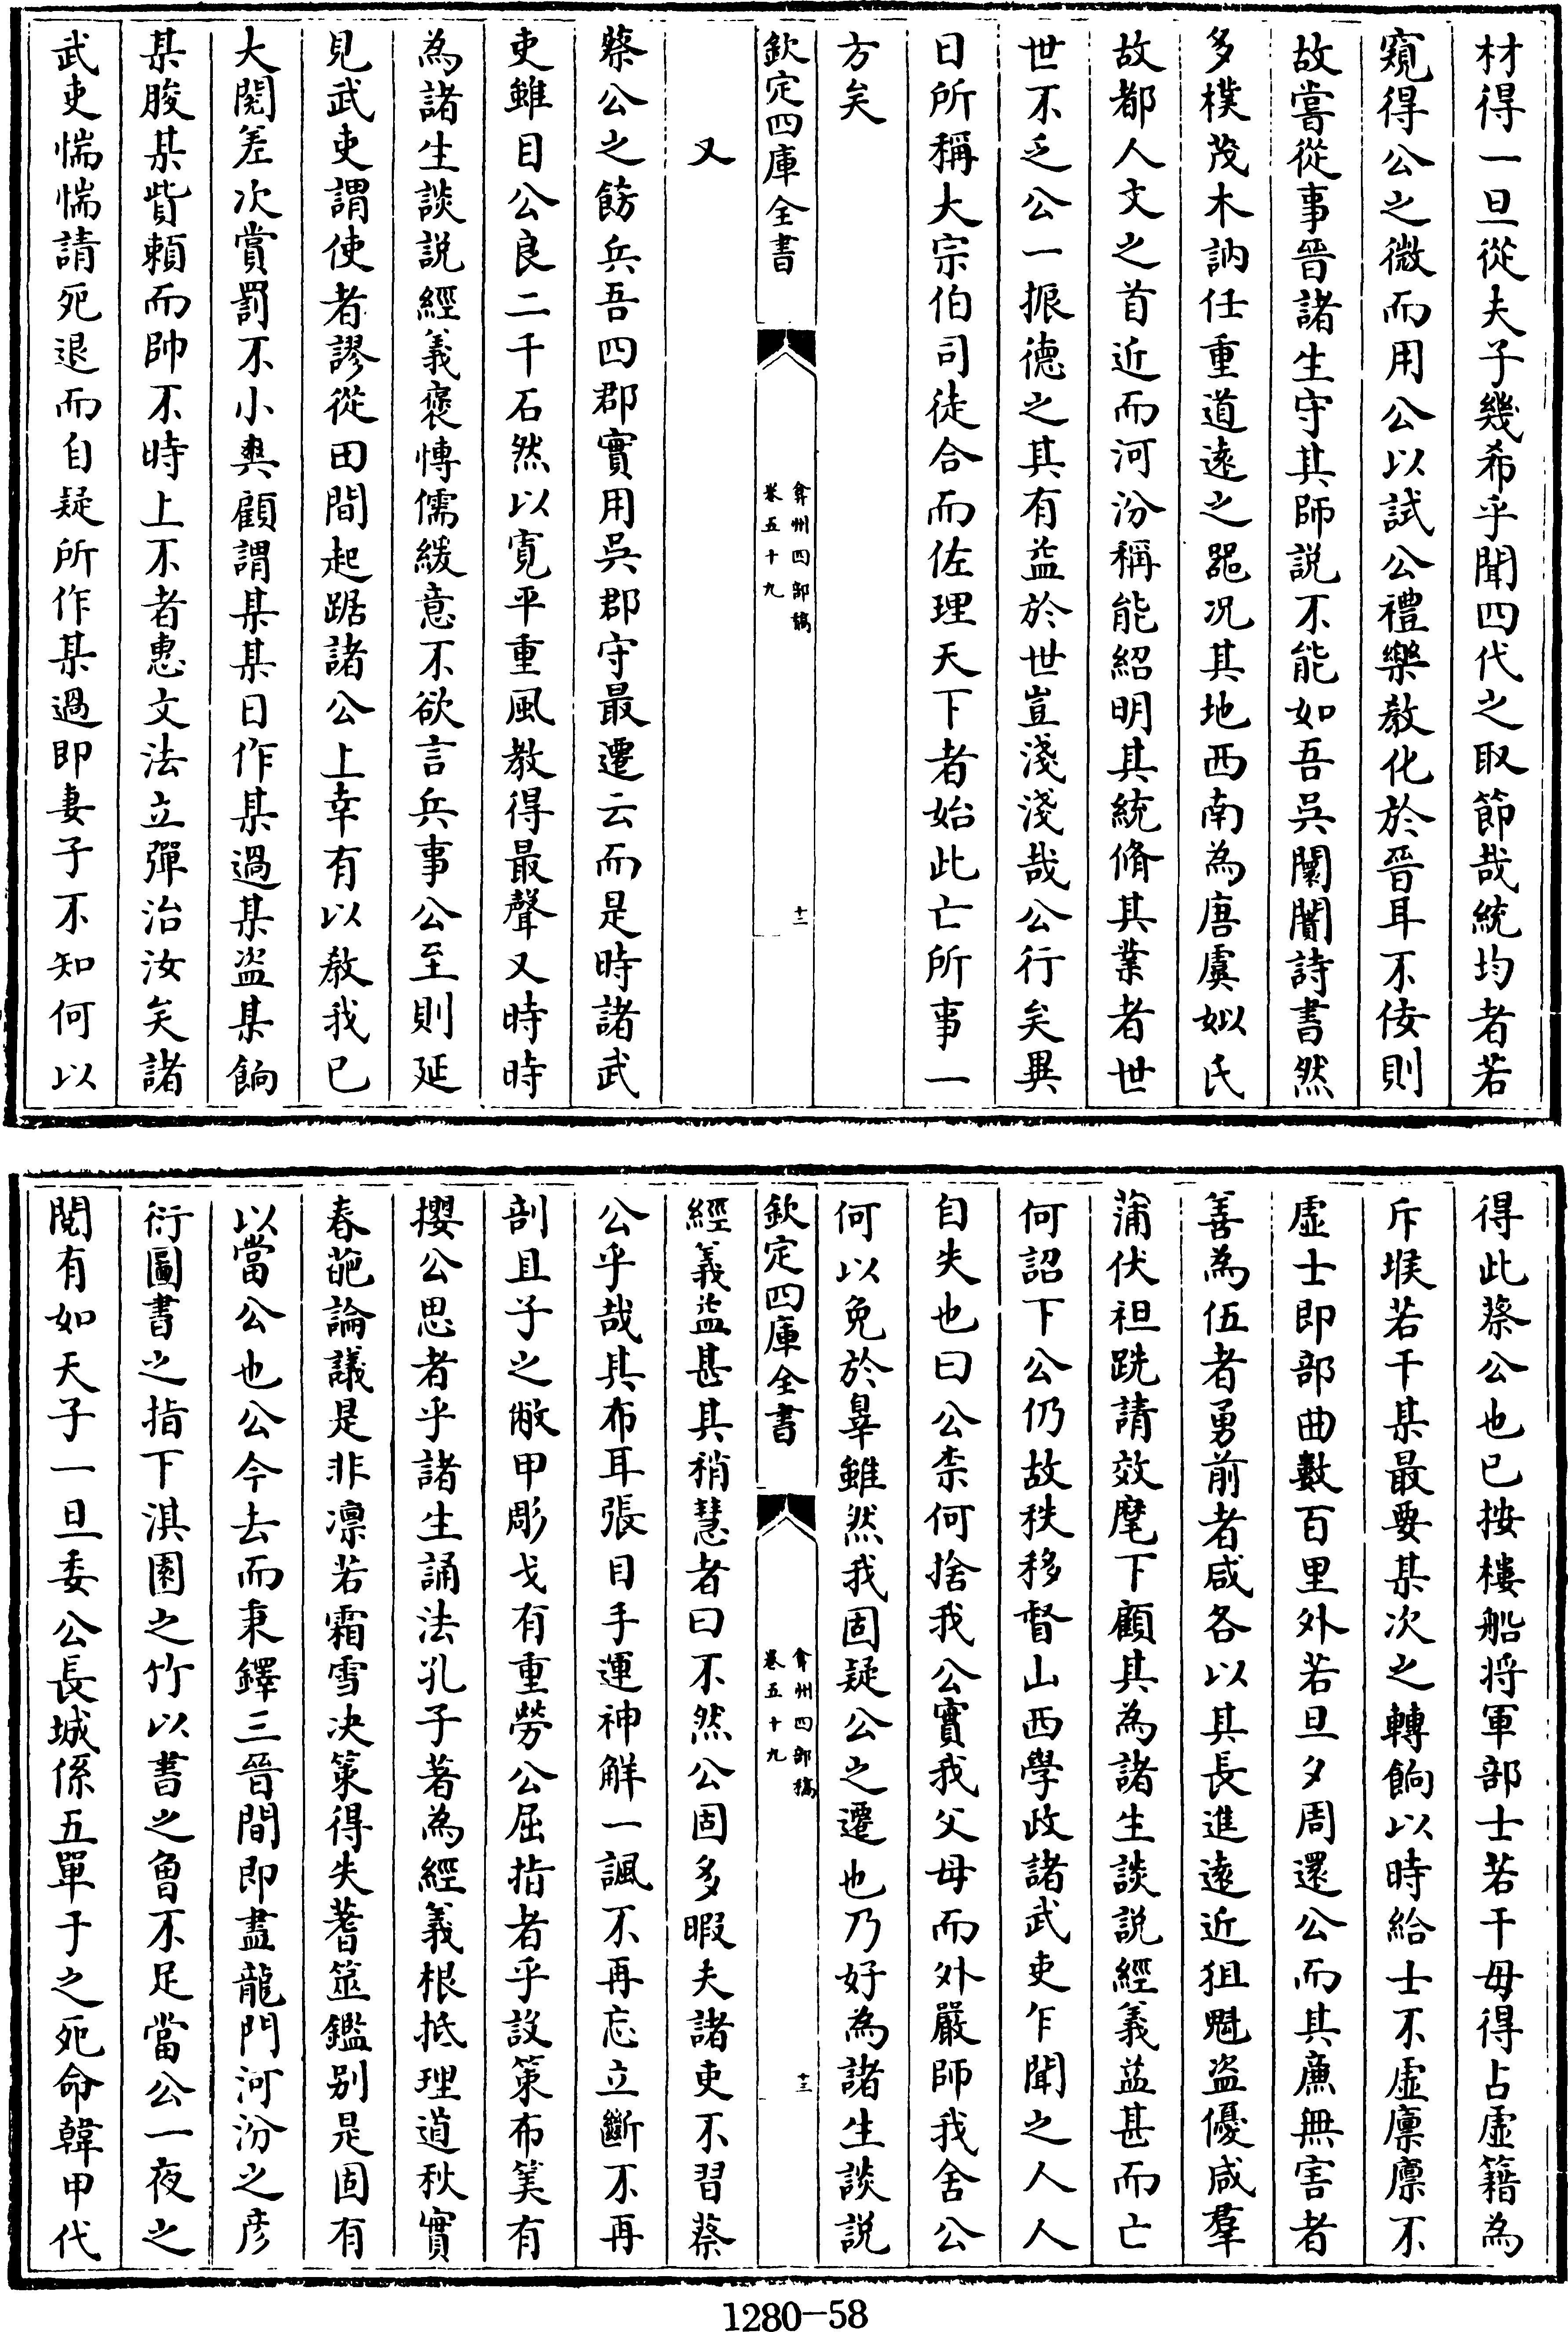 材得一旦從夫子幾希乎聞四代之取節哉統均者若
窺得公之微而用公以試公禮樂敎化於晉耳不佞則
故嘗從事晉諸生守其師説不能如吾吳闤闠詩書然
多樸茂木訥任重道逺之噐况其地西南為唐虞姒氏
故都人文之首近而河汾稱能紹明其統脩其業者世
世不乏公一振德之其有益於世豈淺淺哉公行矣異
日所稱大宗伯司徒合而佐理天下者始此亡所事一
方矣
欽定四庫全書
弇州四部稿
卷五十九
十二
又
蔡公之飭兵吾四郡實用吳郡守最遷云而是時諸武
吏雖目公良二千石然以寛平重風教得最聲又時時
為諸生談説經義褒慱儒緩意不欲言兵事公至則延
見武吏謂使者謬從田間起踞諸公上幸有以敎我已
大閱差次賞罰不小爽顧謂某某日作某過某盜某餉
某朘某貲頼而帥不時上不者惠文法立彈治汝矣諸
武吏惴惴請死退而自疑所作某過即妻子不知何以
得此蔡公也已按樓船将軍部士若干毋得占虛籍為
斥堠若干某最要某次之轉餉以時給士不虛廪廪不
虛士即部曲數百里外若旦夕周還公而其廉無害者
善為伍者勇前者咸各以其長進逺近狙魁盜優咸羣
蒲伏袒跣請效麾下顧其為諸生談説經義益甚而亡
何詔下公仍故秩移督山西學政諸武吏乍聞之人人
自失也曰公柰何捨我公實我父母而外嚴師我舍公
何以免於辠雖然我固疑公之遷也乃好為諸生談説
欽定四庫全書
弇州四部稿
卷五十九
十三
經義益甚其稍慧者曰不然公固多暇夫諸吏不習蔡
公乎哉其布耳張目手運神解一諷不再忘立斷不再
剖且子之敝甲彫戈有重勞公屈指者乎設策布筭有
攖公思者乎諸生誦法孔子著為經義根抵理道秋實
春葩論議是非凛若霜雪决策得失蓍筮鑑别是固有
以當公也公今去而秉鐸三晉間即盡龍門河汾之彦
衍圖書之指下淇園之竹以書之曾不足當公一夜之
閱有如天子一旦委公長城係五單于之死命韓甲代
1280—58